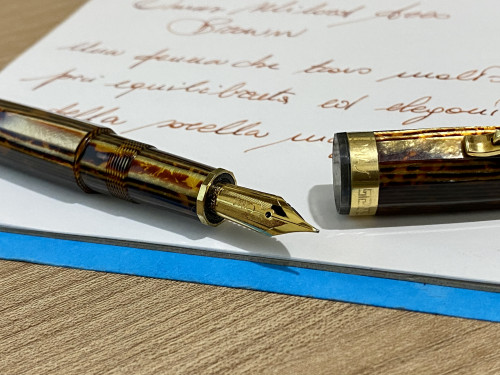 Omas Milord Arco
Brown
Una penna che trovo molt
più equilibrata ed elegan
della sorella